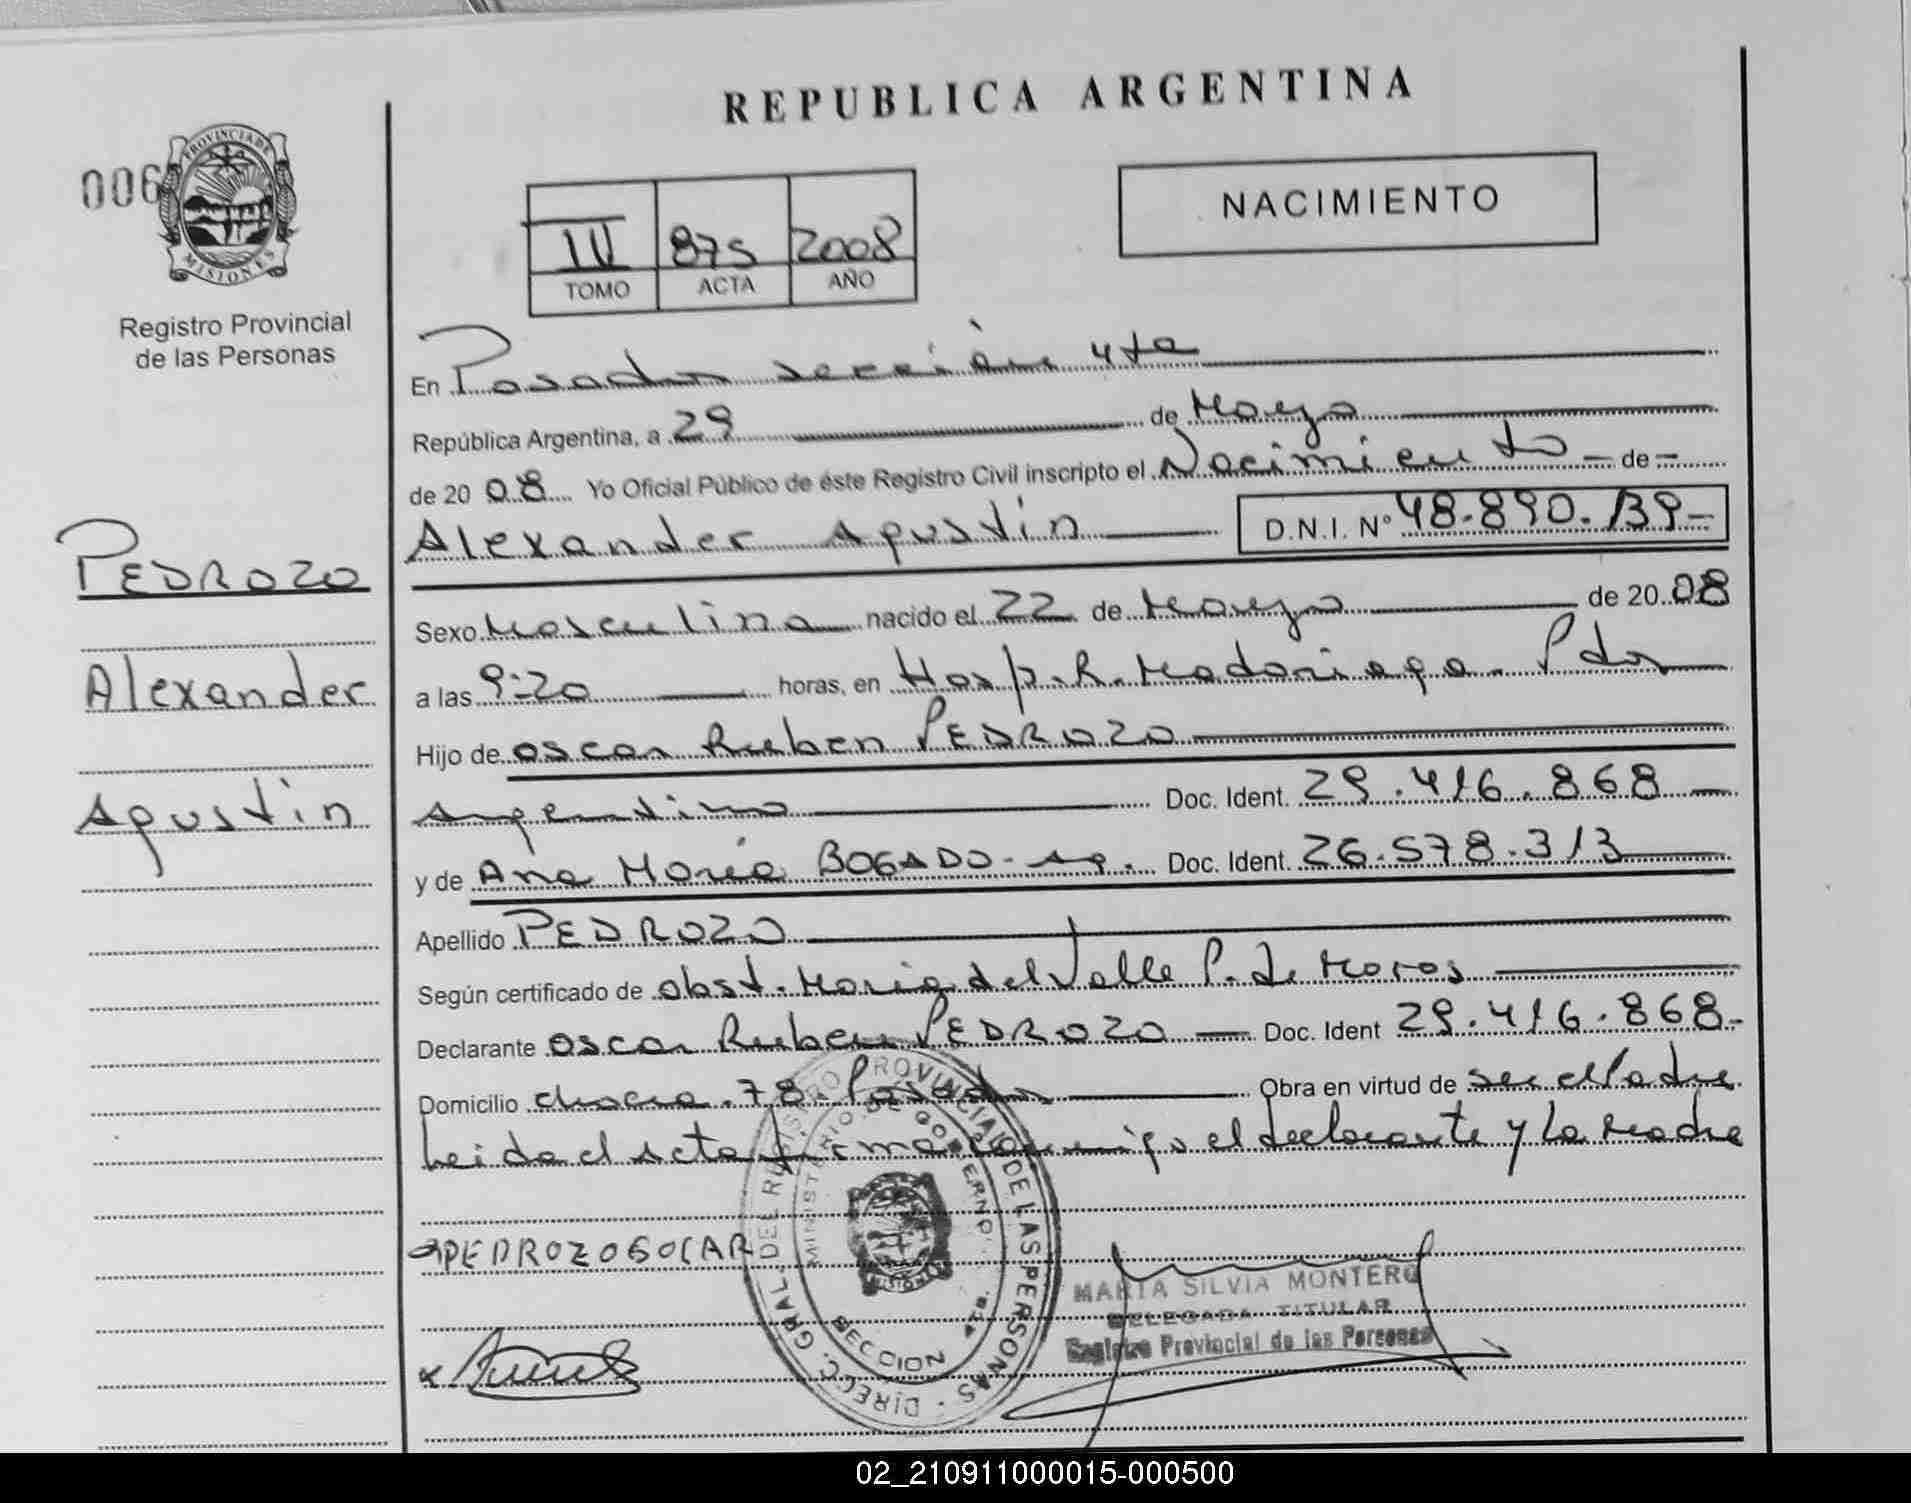 REPUBLICA ARGENTINA
006
PROVINCIA DE
MISIONES
Registro Provincial
de las Personas
NACIMIENTO
III 875 2008
TOMO ACTA AÑO
En Posadas sección 4ta
República Argentina, a 29 de Mayo
de 2008 Yo Oficial Público de éste Registro Civil inscripto el Nacimiento - de -
Alexander Agustín D.N.I. N° 48.890.139-
PEDROZO
Alexander
Agustín
Sexo Masculino nacido el 22 de Mayo de 2008
a las 9:20 horas, en Hosp. R. Madariaga - Pdas
Hijo de Oscar Ruben PEDROZO
Argentino Doc. Ident. 29.416.868
y de Ana María BOGADO - Ag. Doc. Ident. 26.578.313
Apellido PEDROZO
Según certificado de obst. Maria del Valle P. de Moros
Declarante Oscar Ruben PEDROZO Doc. Ident 29.416.868-
Domicilio chacra 78 Posadas Obra en virtud de ser el Padre
Leida el acta firma conmigo el declarante y la Madre
DIRECC. GRAL. DEL REGISTRO PROVINCIAL DE LAS PERSONAS
MINISTERIO DE GOBIERNO
SECCION 4a.
MISIONES
PEDROZO OSCAR
MARIA SILVIA MONTERO
DELEGADA TITULAR
Registro Provincial de las Personas
02_210911000015-000500